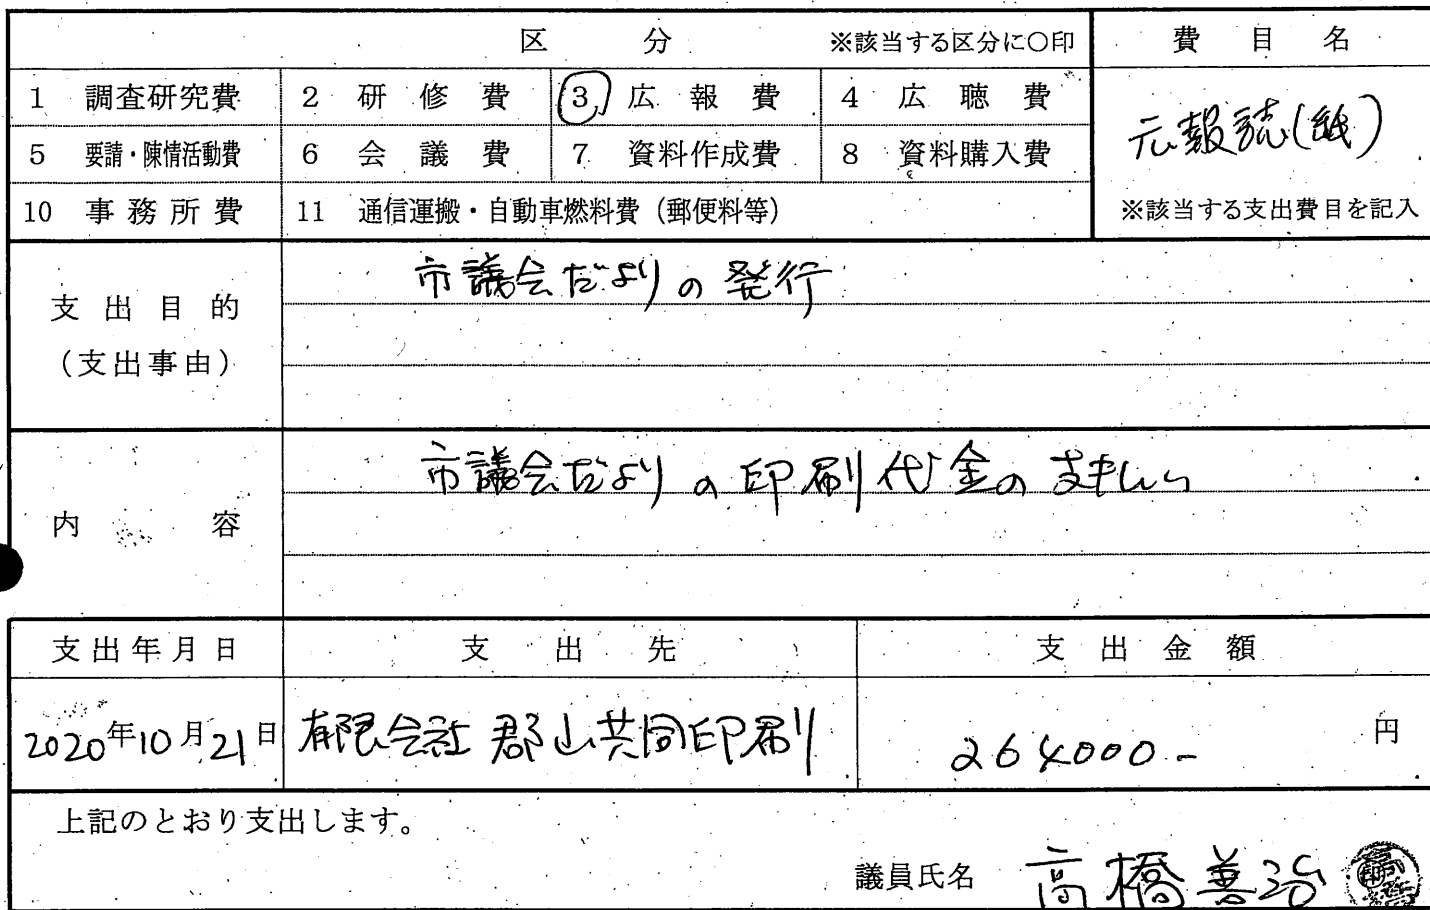 区 分 ※該当する区分に○印 費目名
1 調査研究費 2 研修費 ③ 広報費 4 広聴費
広報誌(紙)
5 要請・陳情活動費 6 会議費 7 資料作成費 8 資料購入費
10 事務所費 11 通信運搬・自動車燃料費(郵便料等) ※該当する支出費目を記入
市議会だよりの発行
支出目的
(支出事由)
市議会だよりの印刷代金の支払い
内容
支出年月日 支出先 支出金額
2020年10月21日 有限会社 郡山共同印刷 264000- 円
上記のとおり支出します。
議員氏名 高橋善治